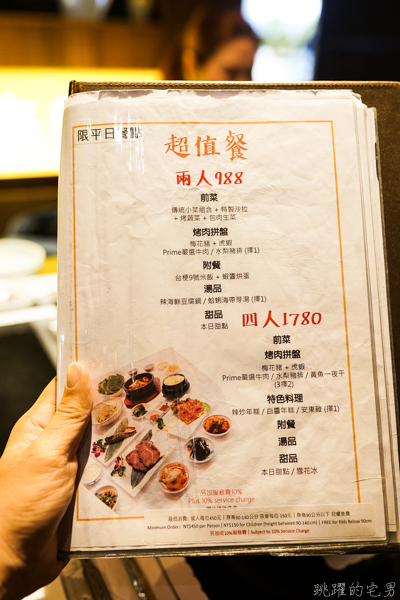 限平日餐點
超值餐
兩人988
前菜
傳統小菜組合 + 特製沙拉
+ 烤蔬菜 + 包肉生菜
烤肉拼盤
梅花豬 + 虎蝦
Prime嚴選牛肉 / 水梨豬排 (擇1)
附餐
台梗9號米飯 + 蝦醬烘蛋
湯品
辣海鮮豆腐鍋 / 蛤蜊海帶芽湯 (擇1)
甜品
本日甜點
四人1780
前菜
烤肉拼盤
梅花豬 + 虎蝦
Prime嚴選牛肉 / 水梨豬排 / 黃魚一夜干
(3擇2)
特色料理
辣炒年糕 / 白醬年糕 / 安東雞 (擇1)
附餐
湯品
甜品
本日甜點 / 雪花冰
另加服務費10%
Plus 10% service charge
Minimum Order : NT$450 per Person | NT$150 for Children (height between 90-140 cm) | FREE for Kids Below 90cm
另加收10%服務費 | Subject to 10% Service Charge
跳躍的宅男